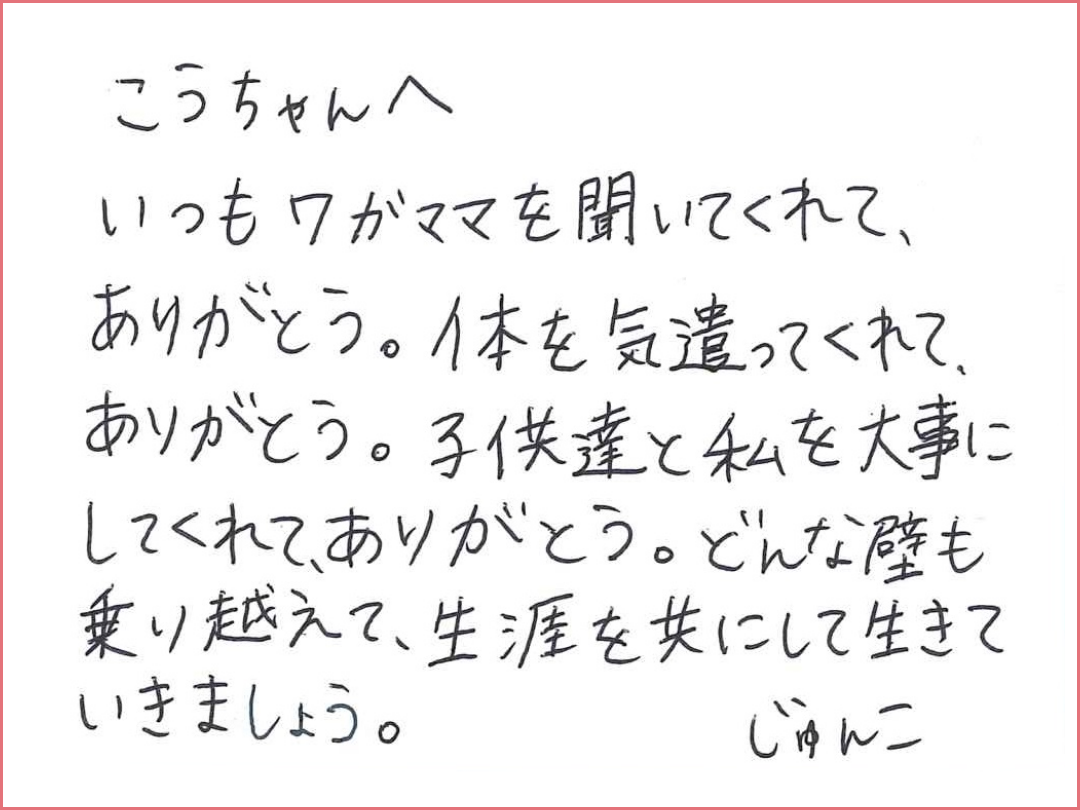 こうちゃんへ
いつもワガママを聞いてくれて、
ありがとう。体を気遣ってくれて、
ありがとう。子供達と私を大事に
してくれて、ありがとう。どんな壁も
乗り越えて、生涯を共にして生きて
いきましょう。
じゅんこ